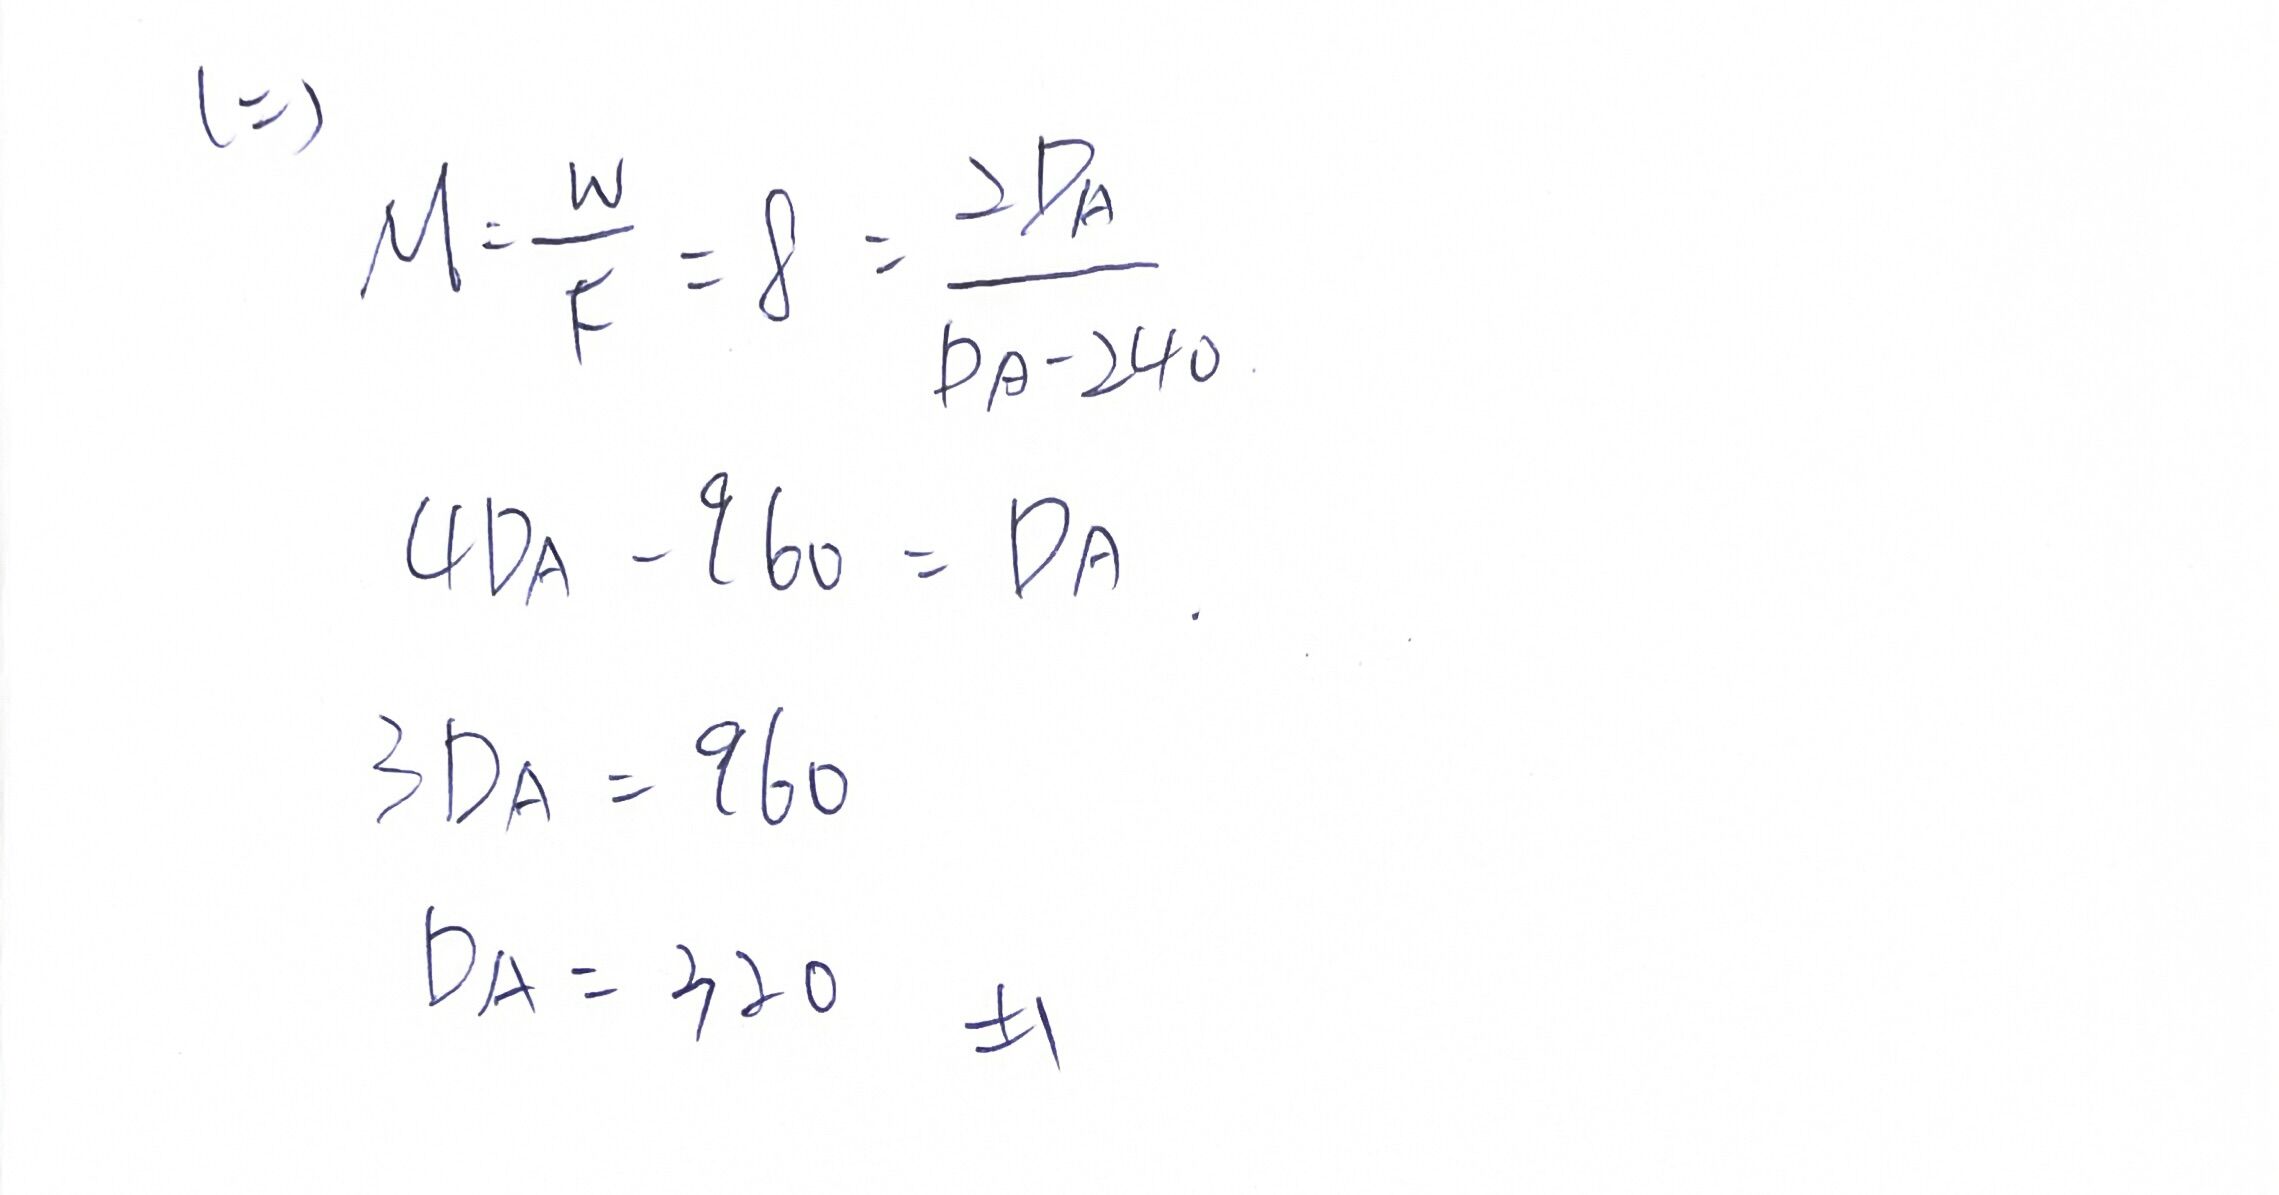 (二)
M = W/F = 8 = 2D_A/(D_A-240)
4D_A - 960 = D_A
3D_A = 960
D_A = 320 #